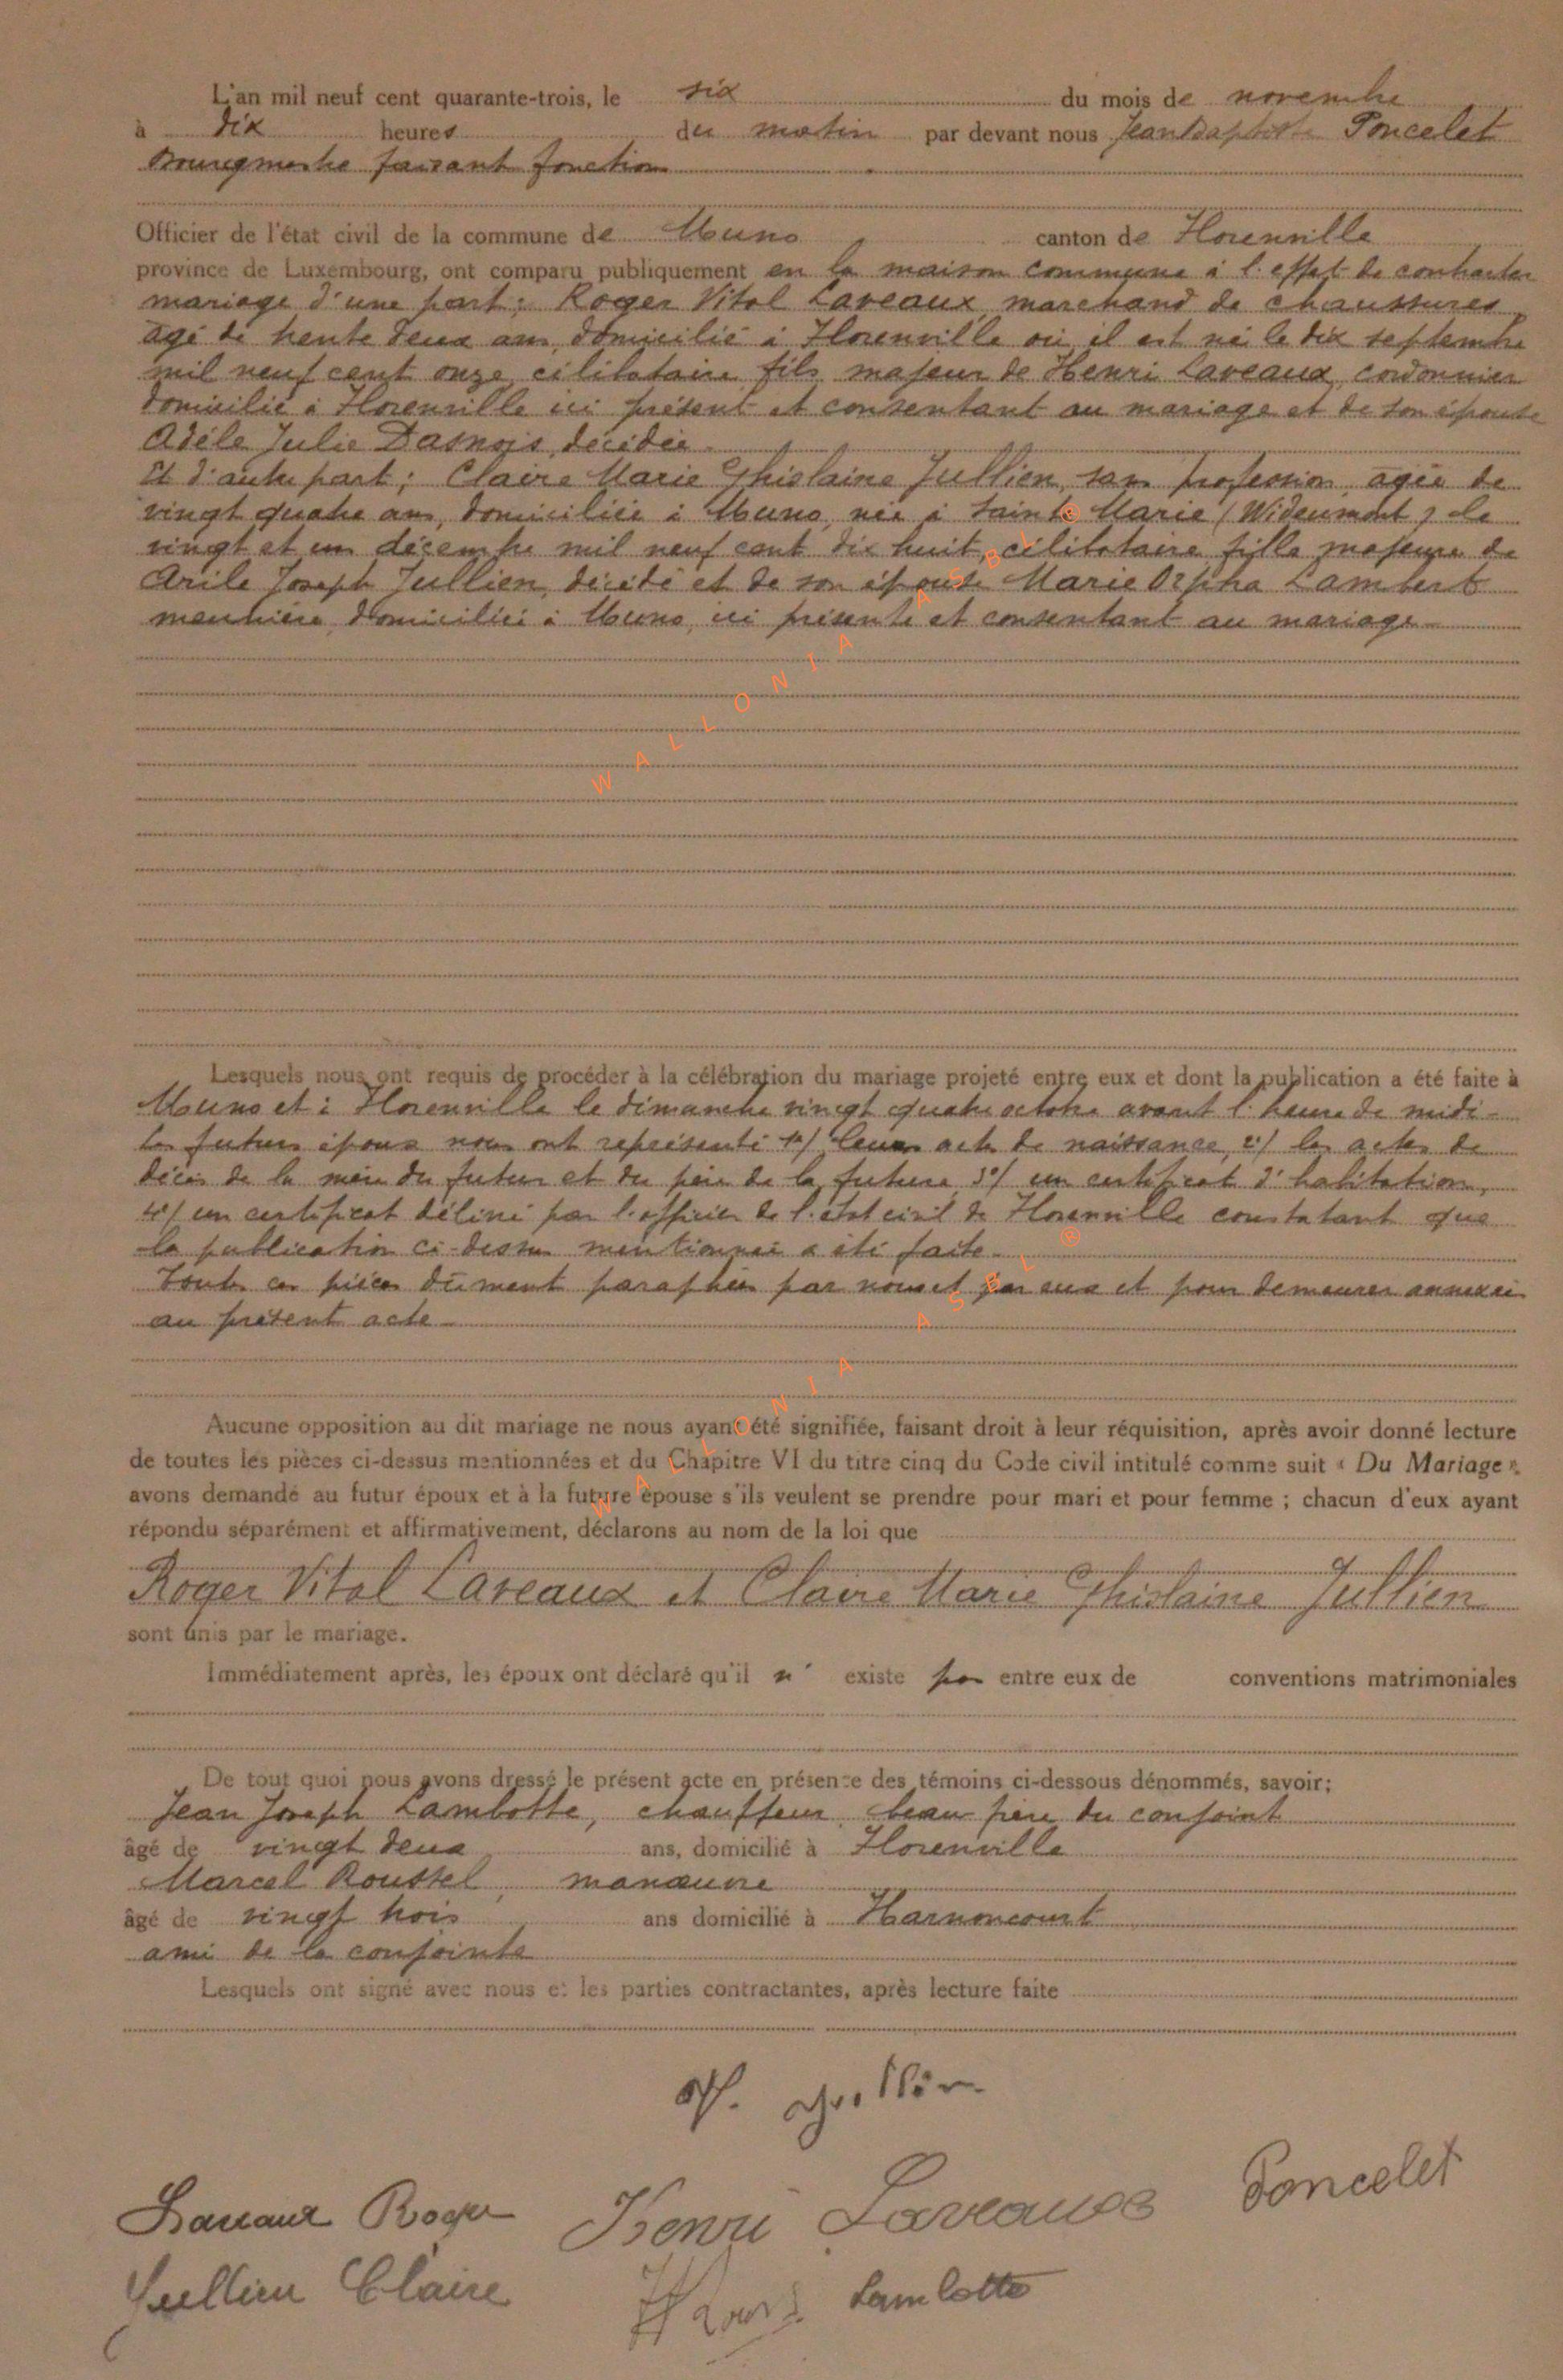 L'an mil neuf cent quarante-trois, le six du mois de novembre
à dix heures du matin par devant nous Jean Baptiste Poncelet
Bourgmestre faisant fonction
Officier de l'état civil de la commune de Muno canton de Florenville
province de Luxembourg, ont comparu publiquement en la maison commune à l'effet de contracter
mariage d'une part; Roger Vital Laveaux marchand de chaussures
agé de trente deux ans, domicilié à Florenville où il est né le dix septembre
mil neuf cent onze, célibataire fils majeur de Henri Laveaux, cordonnier
domicilié à Florenville ici présent et consentant au mariage et de son épouse
Adèle Julie Dasnois, décédée
Et d'autre part; Claire Marie Ghislaine Jullien, sans profession, agée de
vingt quatre ans, domiciliée à Muno, née à Sainte Marie (Wideumont) le
vingt et un décembre mil neuf cent dix huit, célibataire fille majeure de
Joseph Jullien, décédé et de son épouse Marie Orpha Lambert
meunière, domiciliée à Muno, ici présente et consentant au mariage
WALLONIA ASBL ®
Lesquels nous ont requis de procéder à la célébration du mariage projeté entre eux et dont la publication a été faite à
Muno et à Florenville le dimanche vingt quatre octobre avant l'heure de midi
les futurs époux nous ont représenté 1°/ leurs acte de naissance, 2°/ les actes de
décès de la mère du futur et du père de la future, 3°/ un certificat d'habitation,
4°/ un certificat délivré par l'officier de l'état civil de Florenville constatant que
la publication ci-dessus mentionnée a été faite
Toutes ces pièces dûment paraphées par nous et par eux et pour demeurer annexées
au présent acte
WALLONIA ASBL ®
Aucune opposition au dit mariage ne nous ayant été signifiée, faisant droit à leur réquisition, après avoir donné lecture
de toutes les pièces ci-dessus mentionnées et du Chapitre VI du titre cinq du Code civil intitulé comme suit « Du Mariage »
avons demandé au futur époux et à la future épouse s'ils veulent se prendre pour mari et pour femme ; chacun d'eux ayant
répondu séparément et affirmativement, déclarons au nom de la loi que
Roger Vital Laveaux et Claire Marie Ghislaine Jullien
sont unis par le mariage.
Immédiatement après, les époux ont déclaré qu'il n' existe pas entre eux de conventions matrimoniales
De tout quoi nous avons dressé le présent acte en présence des témoins ci-dessous dénommés, savoir;
Jean Joseph Lambotte, chauffeur, beau frère du conjoint
âgé de vingt deux ans, domicilié à Florenville
Marcel Roussel, manœuvre
âgé de vingt trois ans domicilié à Harnoncourt
ami de la conjointe
Lesquels ont signé avec nous et les parties contractantes, après lecture faite
Laveaux Roger Henri Laveaux Poncelet
Jullien Claire Lambotte